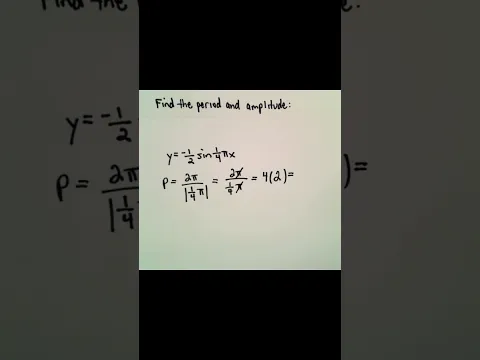 Find the period and amplitude:
y = -1/2 sin 1/4 πx
P = 2π/|1/4 π| = 2π/(1/4 π) = 4(2) =